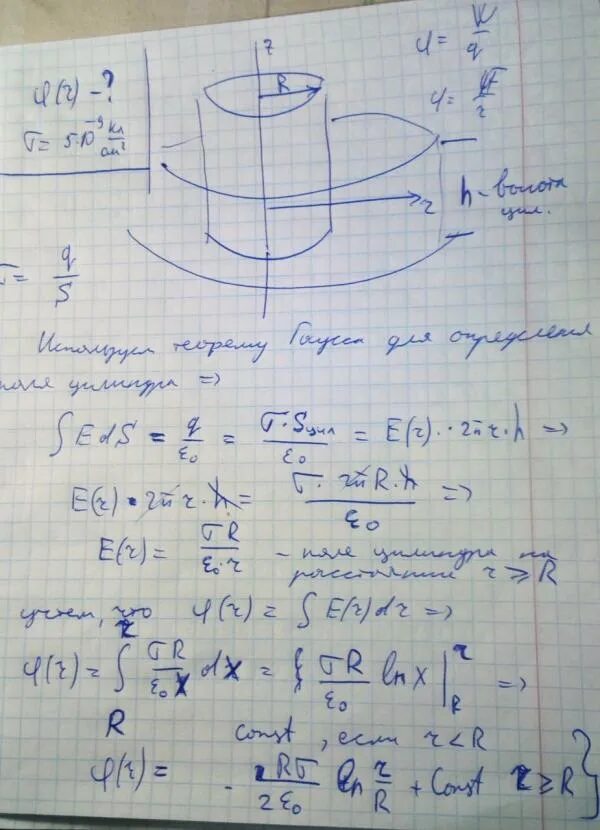 φ(r) - ?
σ = 5·10⁻⁹ Кл/см²
z
R
r
φ = W/q
h - высота
цил.
σ = q/S
Используем теорему Гаусса для определения
поля цилиндра =>
∫ E dS = q/ε₀ = σ·Sцил/ε₀ = E(r)·2πr·h =>
E(r)·2πr·h = σ·2πR·h/ε₀ =>
E(r) = σR/ε₀·r - поле цилиндра на
расстоянии r ≥ R
учтем, что φ(r) = ∫ E(r)dr =>
φ(r) = ∫ σR/ε₀x dx = { σR/ε₀ ln x |ᵣ_R =>
r
R
const, если r < R
φ(r) = - Rσ/2ε₀ ln r/R + Const r ≥ R }